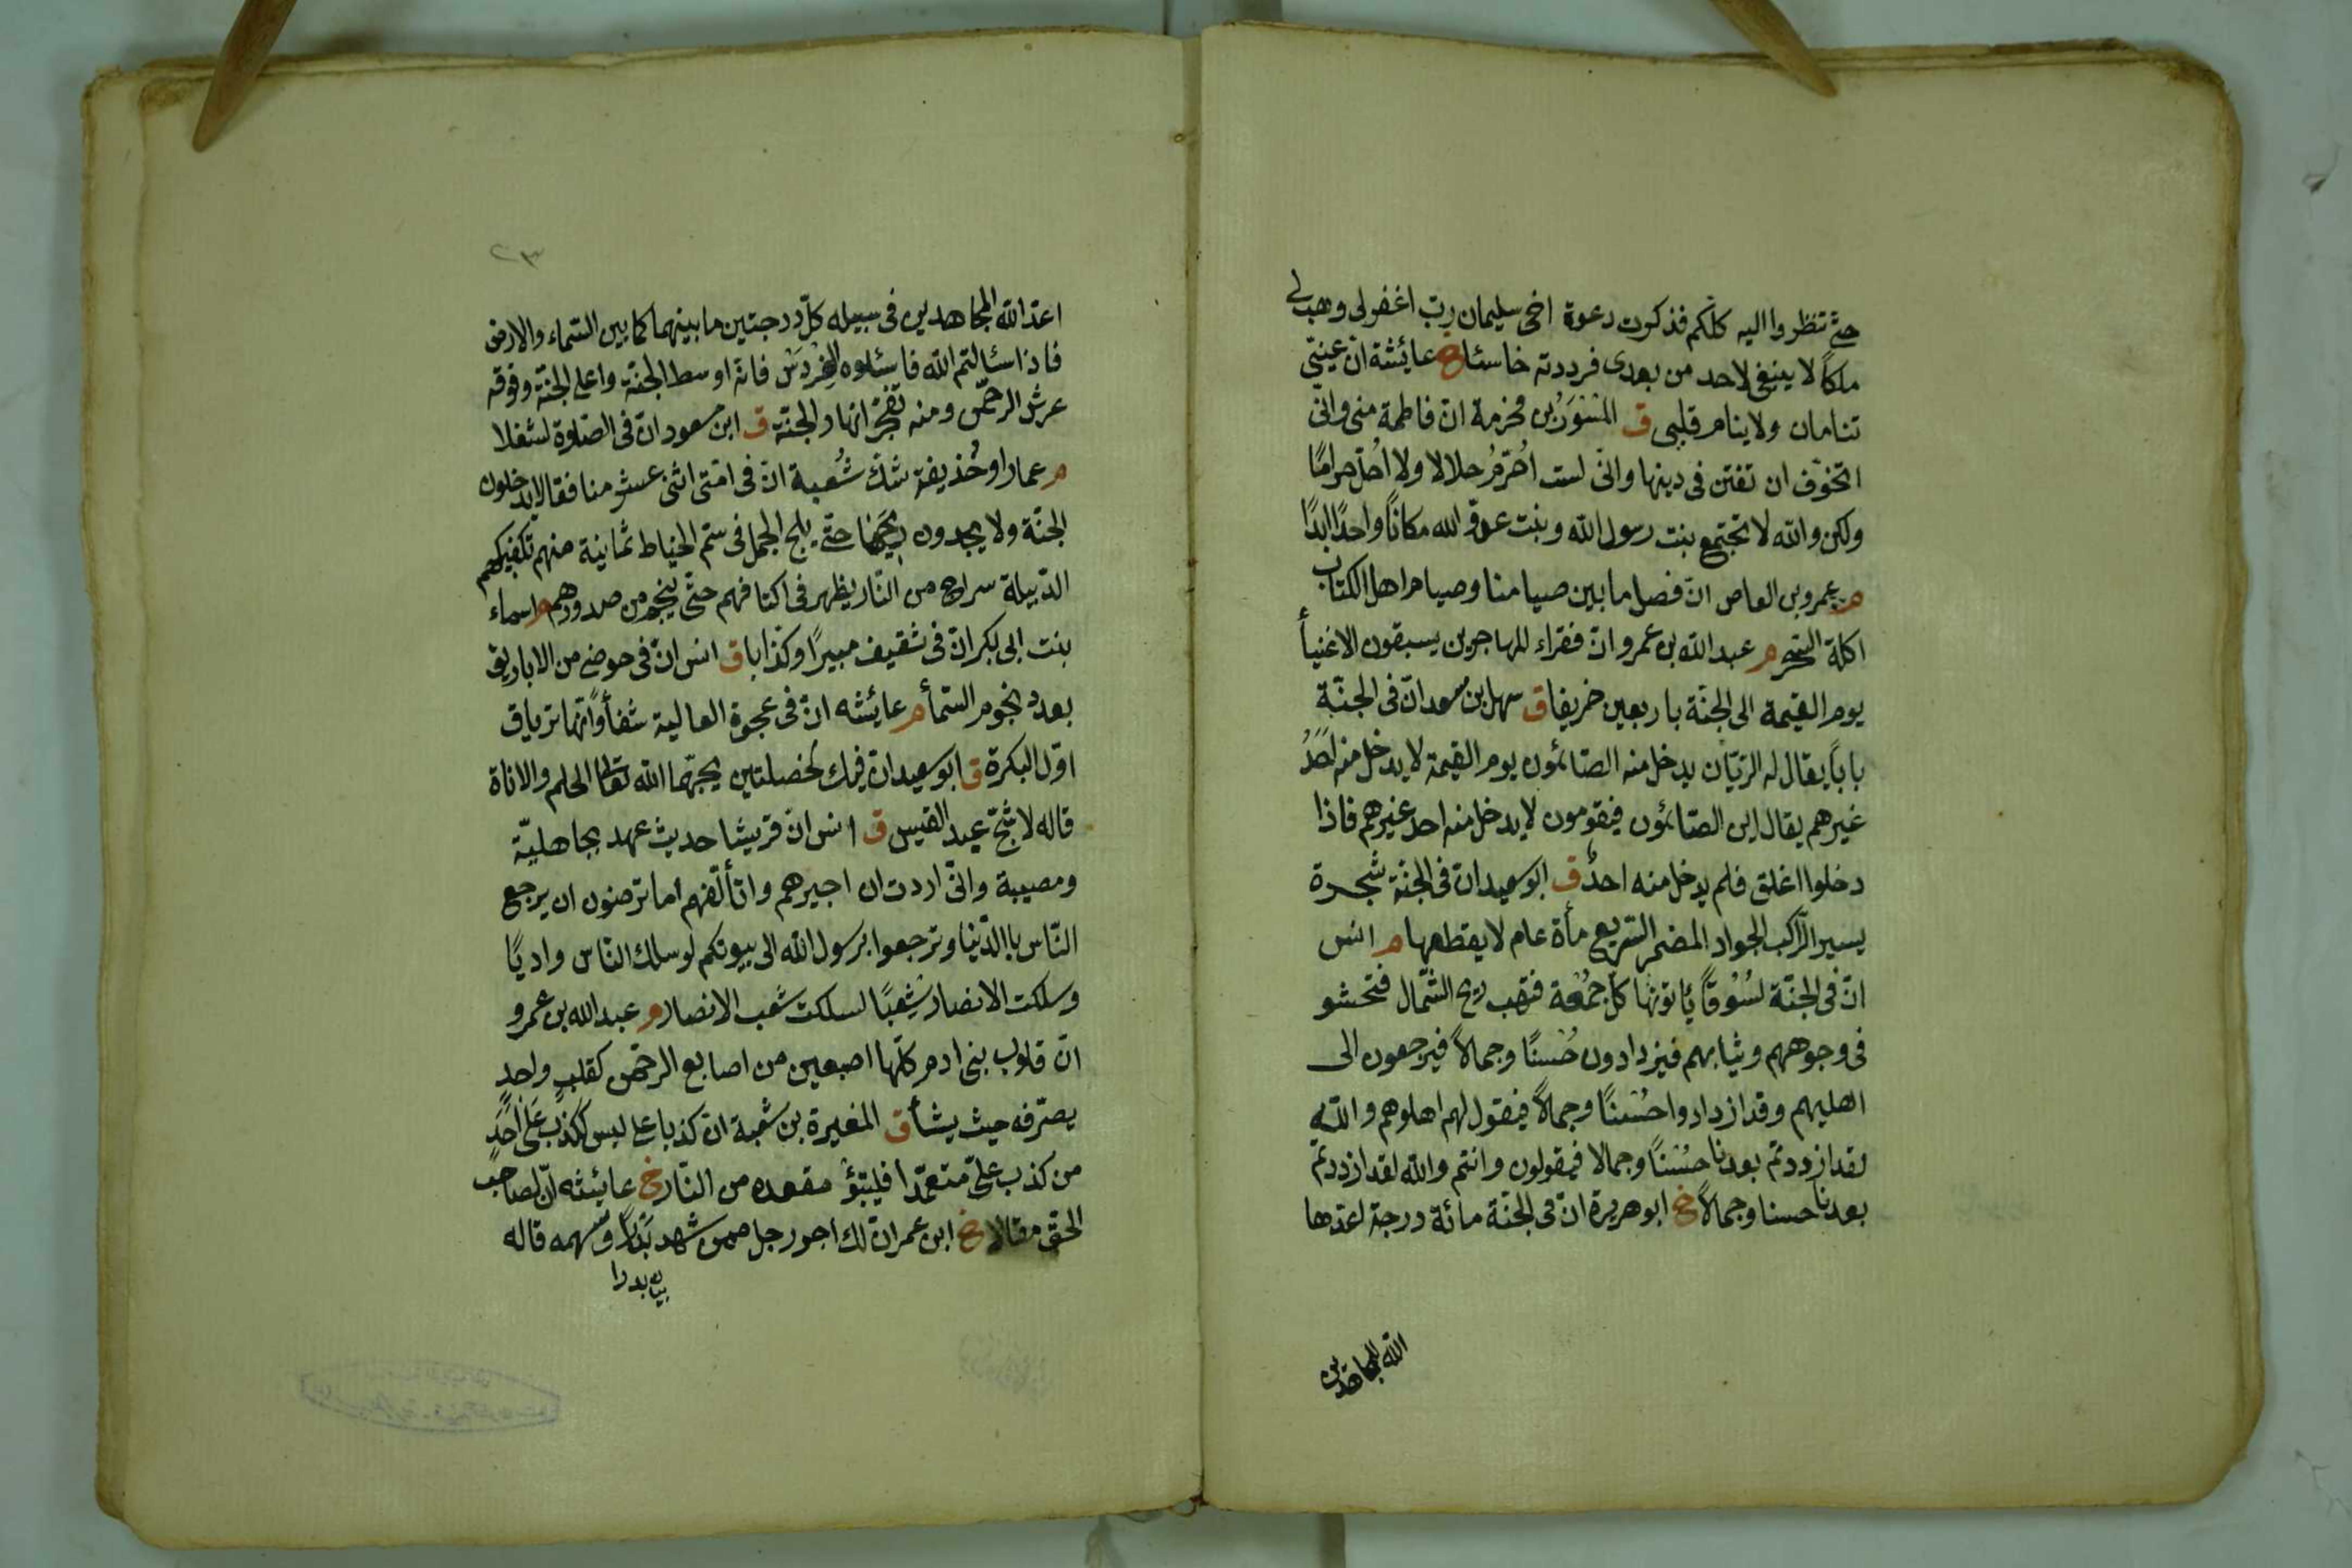 حتى تنظروا اليه كلكم فذكرت دعوة اخى سليمان رب اغفرلى وهب لى
ملكاً لا ينبغى لاحد من بعدى فرددته خاسئا خ عايشة ان عينىّ
تنامان ولا ينام قلبى ق المسْوَرُ بن مخرمة ان فاطمة منى وانى
اتخوّف ان تفتن فى دينها وانى لست اُحَرِّمُ حلالا ولا اُحلّ حرامًا
ولكن والله لا تجتمع بنت رسول الله وبنت عدوّ الله مكانًا واحدًا ابدًا
م عمرو بن العاص انّ فصل ما بين صيامنا وصيام اهل الكتاب
اكلة السّحر م عبد الله بن عمرو انّ فقراء المهاجرين يسبقون الاغنيأ
يوم القيمة الى الجنّة باربعين خريفا ق سهل بن سعد انّ فى الجنّة
باباً يقال له الريّان يدخل منه الصّائمون يوم القيمة لا يدخل منه احَدُ
غيرهم يقال اين الصّائمون فيقومون لا يدخل منه احد غيرهم فاذا
دخلوا اغلق فلم يدخل منه احدٌ ق ابو سعيد ان فى الجنّة شجرة
يسير الرّاكب الجواد المضمر السّريع مأة عام لا يقطعها م انس
انّ فى الجنّة لسُوقًا يأتونها كلّ جمُعة فتهب ريح الشّمال فتحشو
فى وجوههم وثيابهم فيزدادون حُسنًا وجمالاً فيرجعون الى
اهليهم وقد ازدادوا حُسْنًا وجمالاً فيقول لهم اهلوهم والله
لقد ازددتم بعدنا حُسْنًا وجمالا فيقولون وانتم والله لقد ازددتم
بعدنا حسنا وجمالاً خ ابو هريرة انّ فى الجنّة مائة درجة اعدّها
الله للمجاهدين
٢٣
اعدّ الله المجاهدين فى سبيله كلّ درجتين ما بينهما كما بين السّماء والارض
فاذا سئالتم الله فاسئلوه الفِرْدَسْ فانّه اوسط الجنّة واعلى الجنّة وفوقه
عرش الرحمن ومنه تفجّر انهار الجنّة ق ابن مسعود انّ فى الصّلوة لشغلا
م عمار او حُذيفة شكّ شُعبة انّ فى امّتى اثنى عشر منافقا لا يدخلون
الجنّة ولا يجدون ريحَها حتّى يلج الجمل فى سمّ الخياط ثمانية منهم تكفيكهم
الدّبيلة سراج من النّار يظهر فى اكتافهم حتّى ينجم من صدورهم م اسماء
بنت ابى بكر انّ فى ثقيف مبيرًا وكذّابا ق انس انّ فى حوضى من الاباريق
بعدد نجوم السّمأ م عائشه انّ فى عجوة العالية شفأً وانّها ترياق
اوّل البكرة ق ابو سعيد ان فيك لخصلتين يحبّهما الله تعالى الحلم والاناة
قاله لاشجّ عبد القيس ق انس انّ قريشا حديث عهد بجاهليّة
ومصيبة وانّى اردت ان اجيرهم واتألّفهم اما ترضون ان يرجع
النّاس باالدّنيا وترجعوا برسول الله الى بيوتكم لو سلك النّاس واديًا
وسلكت الانصار شِعْبًا لسلكت شعب الانصار م عبد الله بن عمرو
انّ قلوب بنى ادم كلّها اصبعين من اصابع الرحمن كقلبٍ واحدٍ
يصرّفه حيث يشأ ق المغيرة بن شعبة ان كذبا علىّ ليس ككذب عَلَى احَدٍ
من كذب علىّ متعمّدا فليتبوّؤ مقعده من النّار خ عايشه انّ لصاحب
الحق مقالا خ ابن عمر انّ لك اجر رجل ممن شهد بدرًا وسهمه قاله
بيان بدرا